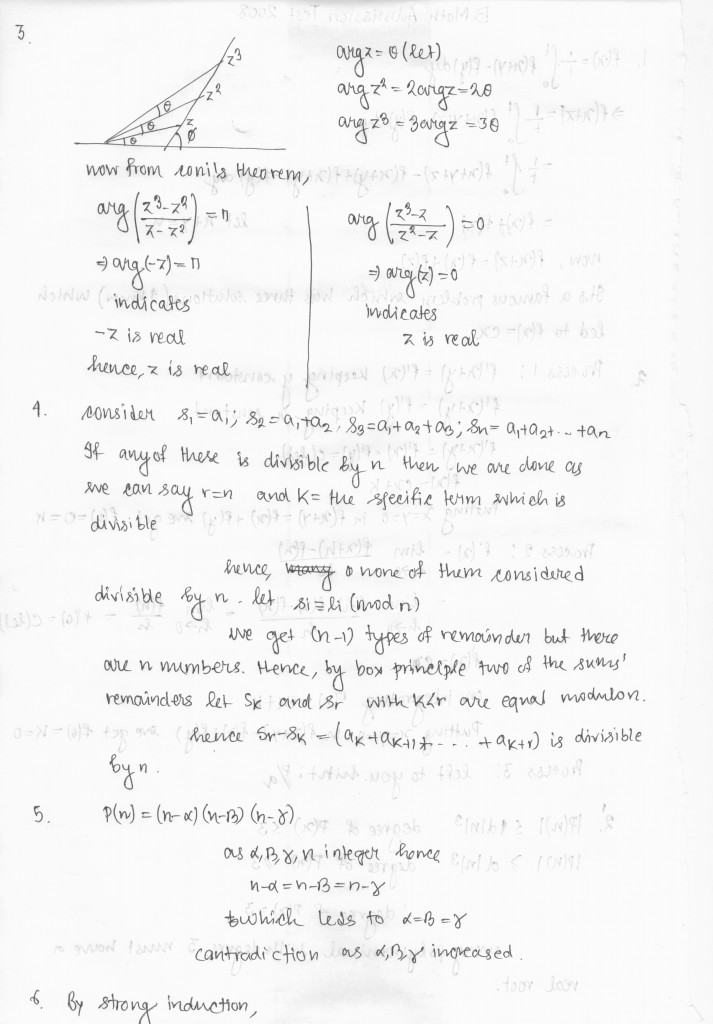 3.
z³
z²
z
θ
θ
θ
ø
arg z = θ (let)
arg z² = 2arg z = 2θ
arg z³ = 3arg z = 3θ
now from coni's theorem,
arg (z³-z² / z-z²) = π
⇒ arg(-z) = π
indicates
-z is real
hence, z is real
arg (z³-z / z²-z) = 0
⇒ arg(z) = 0
indicates
z is real
4. consider s₁=a₁; s₂=a₁+a₂, s₃=a₁+a₂+a₃; sn= a₁+a₂+...+an
If any of these is divisible by n then we are done as
we can say r=n and K= the specific term which is
divisible
hence, none of them considered
divisible by n. let si≡li (mod n)
we get (n-1) types of remainder but there
are n numbers. Hence, by box principle two of the sums'
remainders let Sk and Sr with K<r are equal modulo n.
hence Sr-Sk = (aK+aK+1+ ... +aK+r) is divisible
by n.
5. P(n) = (n-α)(n-β)(n-γ)
as α,β,γ,n integer hence
n-α=n-β=n-γ
which leds to α=β=γ
cantradiction as α,β,γ increased.
6. By strong induction,